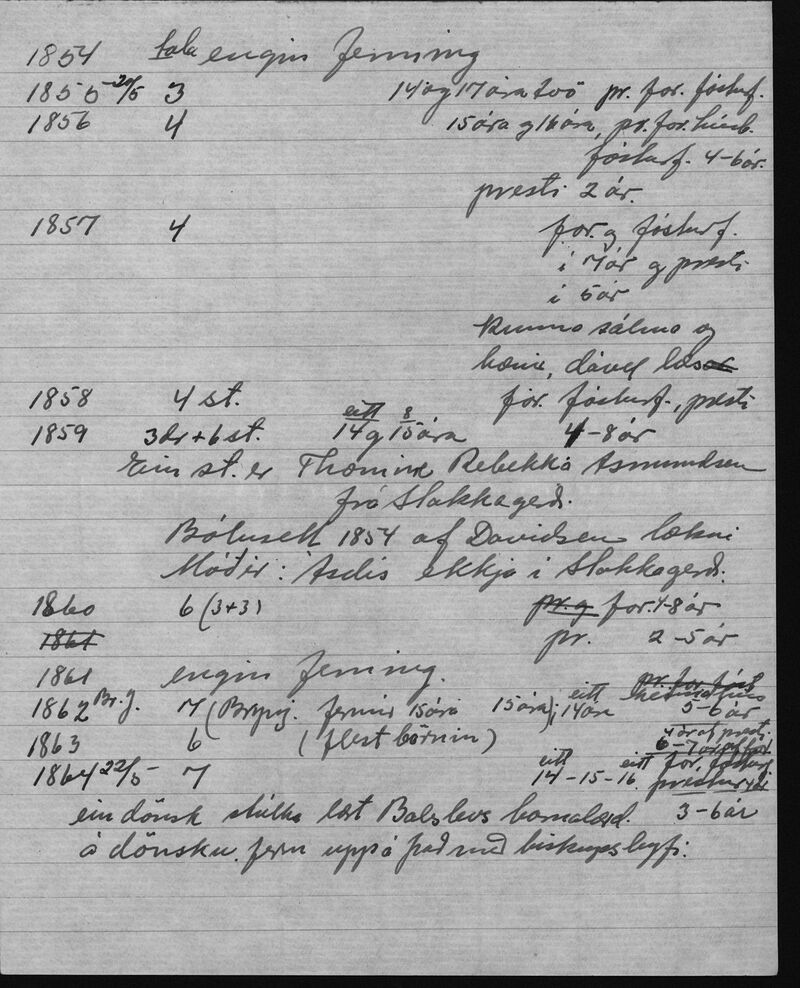 1854 tala engin ferming
1855 20/5 3 14 og 17 ára tvö pr. for. fósturf.
1856 4 15 ára og 16 ára, pr. for. húsb.
fósturf. 4-6 ár.
presti 2 ár.
1857 4 for. og fósturf.
í 7 ár og presti
í 5 ár
kunna sálma og
bænir, dável læs
1858 4 st. for. fósturf., presti
1859 3 dr + 6 st. eitt 14 og 8 15 ára 4-8 ár
Ein st. er Thomine Rebekka Asmundsen
frá Stakkagerð.
Bólusett 1854 af Davidsen lækni
Móðir: Asdis ekkja í Stakkagerð.
1860 6 (3+3) pr. og for. 4-8 ár
1861 pr. 2-5 ár
1861 engin ferming. pr. for. fóst
1862 Br. J. 7 (Brynj. fermir 15 ára 15 ára); eitt 14 ára 5-6 ár
1863 6 (flest börnin) 4 ár af presti
6-7 ár af for.
1864 22/5 7 eitt 14-15-16 eitt for. fósturf
prestur 4 ár
ein dönsk stúlka lært Balslevs barnalærd. 3-6 ár
á dönsku. ferm uppá það með biskupsleyfi.